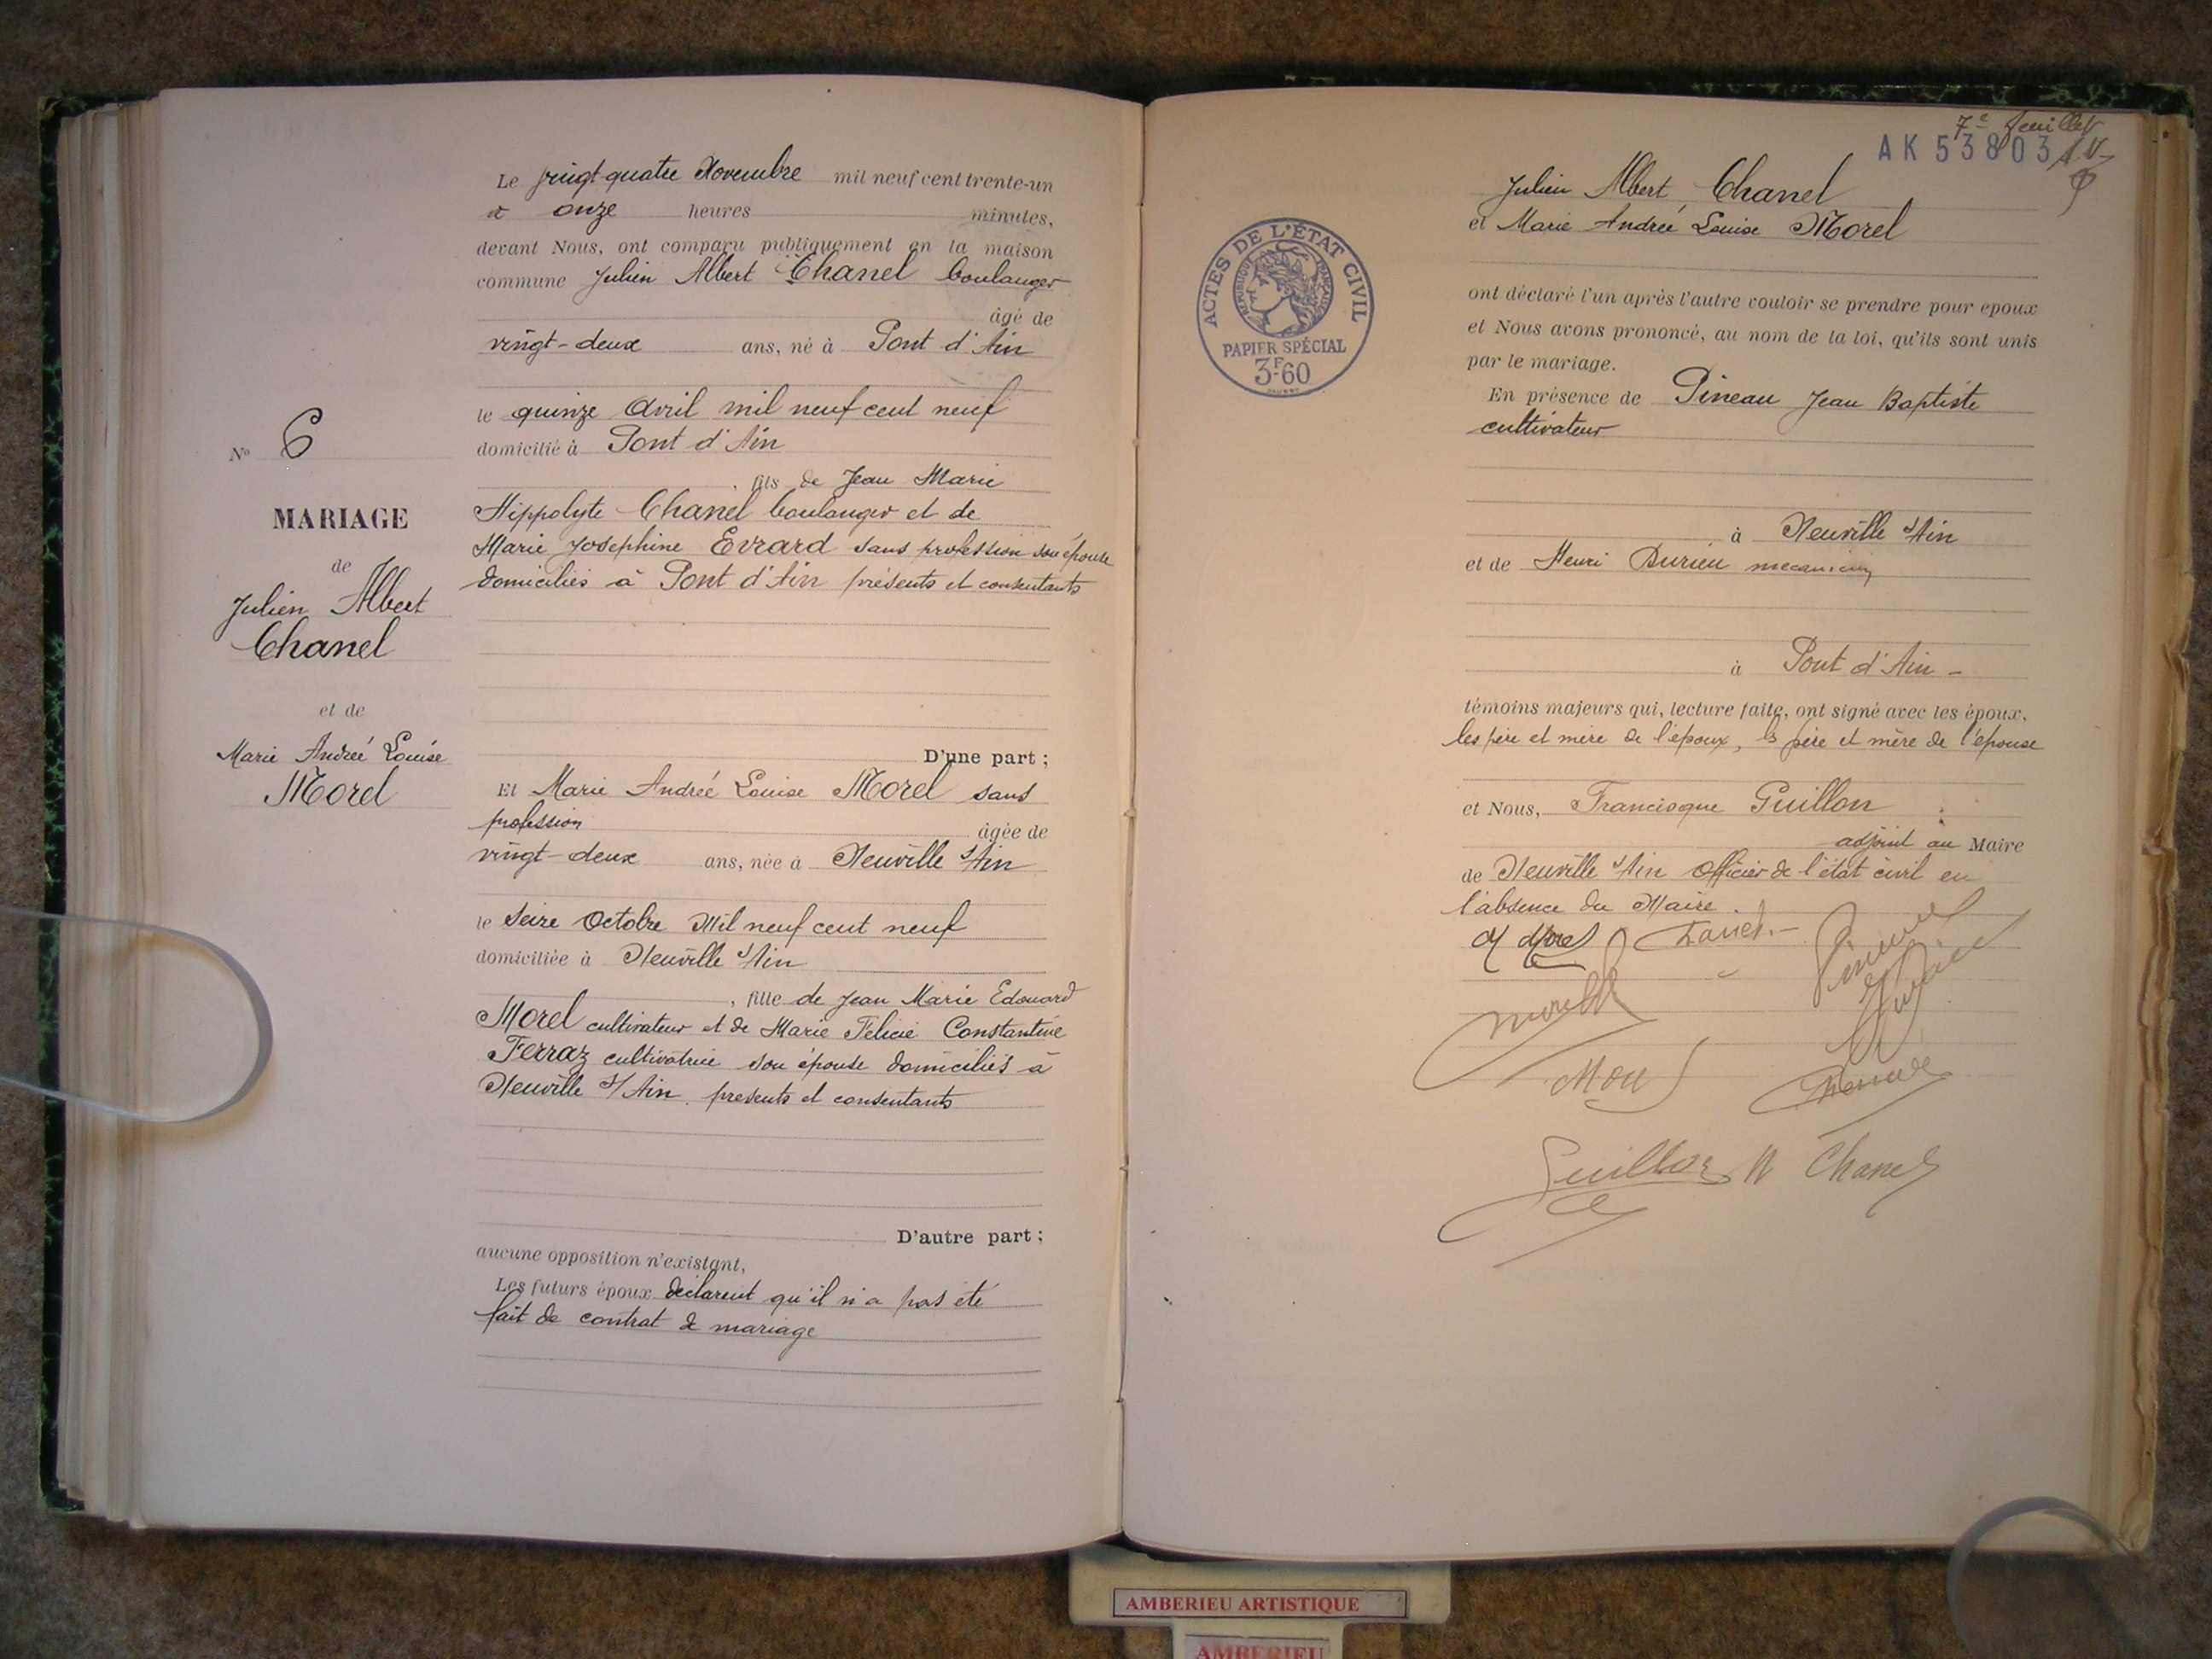 Le vingt-quatre Novembre mil neuf cent trente-un
à onze heures minutes,
devant Nous, ont comparu publiquement en la maison
commune Julien Albert Chanel boulanger
âgé de
vingt-deux ans, né à Pont d'Ain
le quinze Avril mil neuf cent neuf
domicilié à Pont d'Ain
, fils de Jean Marie
Hippolyte Chanel boulanger et de
Marie Josephine Evrard sans profession son épouse
domiciliés à Pont d'Ain présents et consentants
D'une part ;
Et Marie Andreé Louise Morel sans
profession âgée de
vingt-deux ans, née à Neuville s/Ain
le seize Octobre Mil neuf cent neuf
domiciliée à Neuville s/Ain
, fille de Jean Marie Edouard
Morel cultivateur et de Marie Félicie Constantine
Ferraz cultivatrice son épouse domiciliés à
Neuville s/Ain présents et consentants
D'autre part ;
aucune opposition n'existant,
Les futurs époux déclarent qu'il n'a pas été
fait de contrat de mariage
No 6
MARIAGE
de
Julien Albert
Chanel
et de
Marie Andreé Louise
Morel
7e feuillet
AK 53803
Julien Albert Chanel
et Marie Andreé Louise Morel
ACTES DE L'ÉTAT CIVIL
RÉPUBLIQUE FRANÇAISE
PAPIER SPÉCIAL
3F60
ont déclaré l'un après l'autre vouloir se prendre pour epoux
et Nous avons prononcé, au nom de la loi, qu'ils sont unis
par le mariage.
En présence de Pineau Jean Baptiste
cultivateur
à Neuville s/Ain
et de Henri Durieu mecanicien
à Pont d'Ain -
témoins majeurs qui, lecture faite, ont signé avec les époux,
les père et mère de l'époux, ls père et mère de l'épouse
et Nous, Francisque Guillon
adjoint au Maire
de Neuville s/Ain Officier de l'état civil en
l'absence du Maire.
Guillon N Chanel
AMBERIEU ARTISTIQUE
AMBERIEU